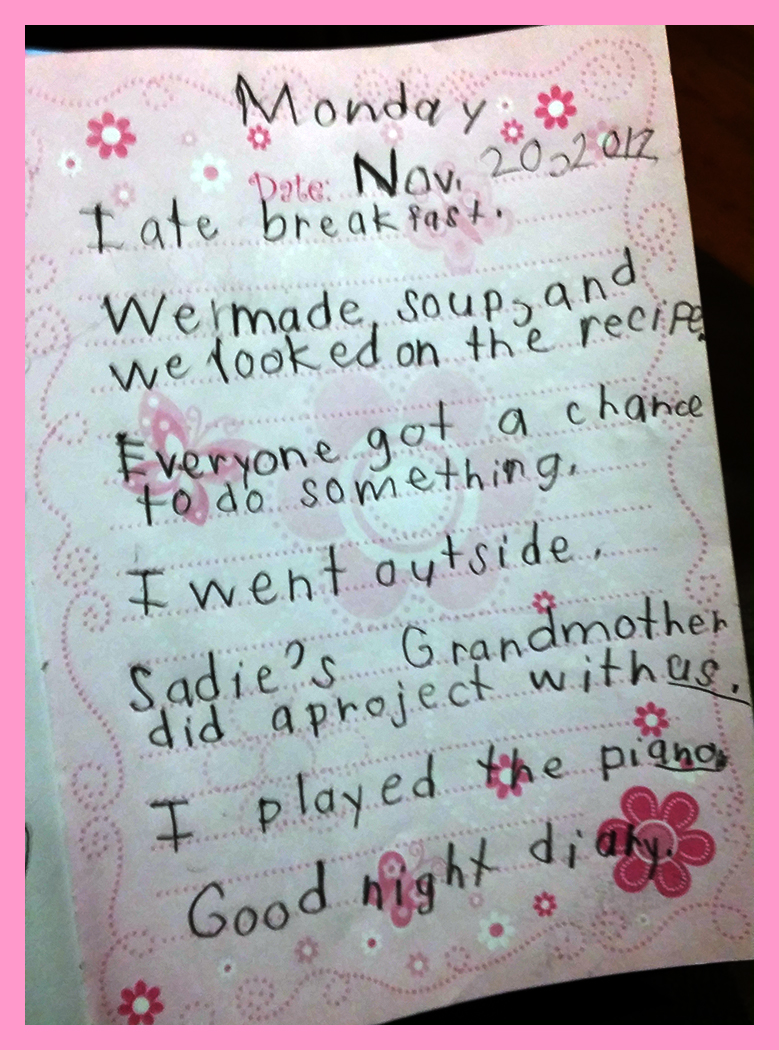 Monday
Date: Nov. 20, 2012
I ate breakfast.
We made soup, and
we looked on the recipe.
Everyone got a chance
to do something.
I went outside.
Sadie's Grandmother
did a project with us.
I played the piano.
Good night diary.